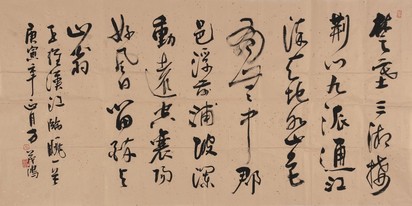 楚塞三湘接
荆门九派通江
流天地外山色
有无中郡
邑浮前浦波澜
動遠空襄陽
好風日留醉与
山翁
王維漢江臨眺一首
庚寅年正月